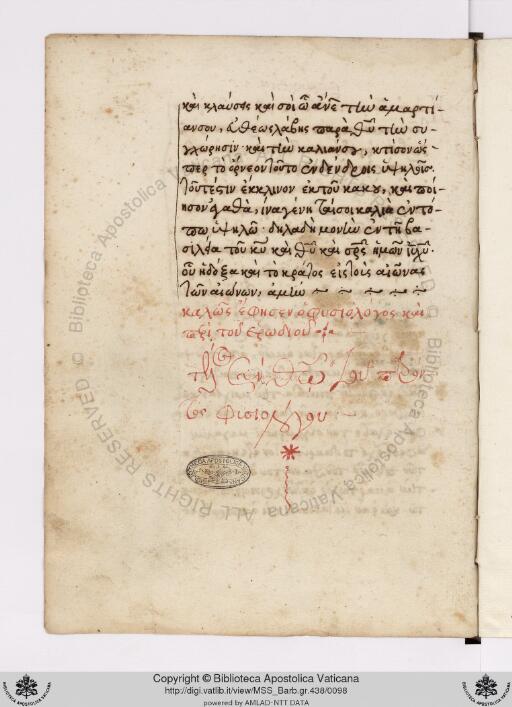 καὶ κλαύσης καὶ σοὶ ὦ ἄνε τὴν ἁμαρτί-
αν σου, καὶ θέως λάβης παρὰ θυ τὴν συ-
γχώρησιν· καὶ τὴν καλιάν σου, κτίσον ὥς
περ τὸ ὄρνεον τοῦτο ἐν δένδροις ὑψηλοῖς·
τοῦτέστιν ἔκκλινον ἐκ τοῦ κακοῦ, καὶ ποί-
ησον ἀγαθὰ, ἵνα γένηται σοι καλιὰ ἐν τό-
πω ὑψηλῶ· δηλαδὴ μονὴν ἐν τῆ βα-
σιλέα τοῦ κυ καὶ θυ καὶ σρς ἡμῶν ιυ χυ·
οὗ ἡ δόξα καὶ τὸ κράτος εἰς τοὺς αἰῶνας
τῶν αἰώνων, ἀμήν
καλῶς ἔφησεν ὁ φυσιολόγος καὶ
περὶ τοῦ ἐρωδιοῦ
φισιολόγου
Copyright © Biblioteca Apostolica Vaticana
http://digi.vatlib.it/view/MSS_Barb.gr.438/0098
powered by AMLAD-NTT DATA
ALL RIGHTS RESERVED © Biblioteca Apostolica Vaticana